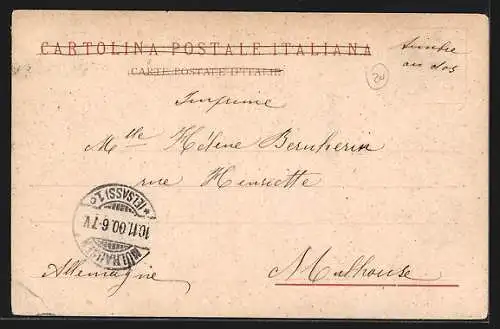 CARTOLINA POSTALE ITALIANA
CARTE POSTALE D'ITALIE
timbre
au dos
20
Imprimé
Mlle Hélène
rue Henriette
MÜLHAUSEN
10.11.00.6-7V.
*(ELSASS)1.c
Allemagne
Mulhouse